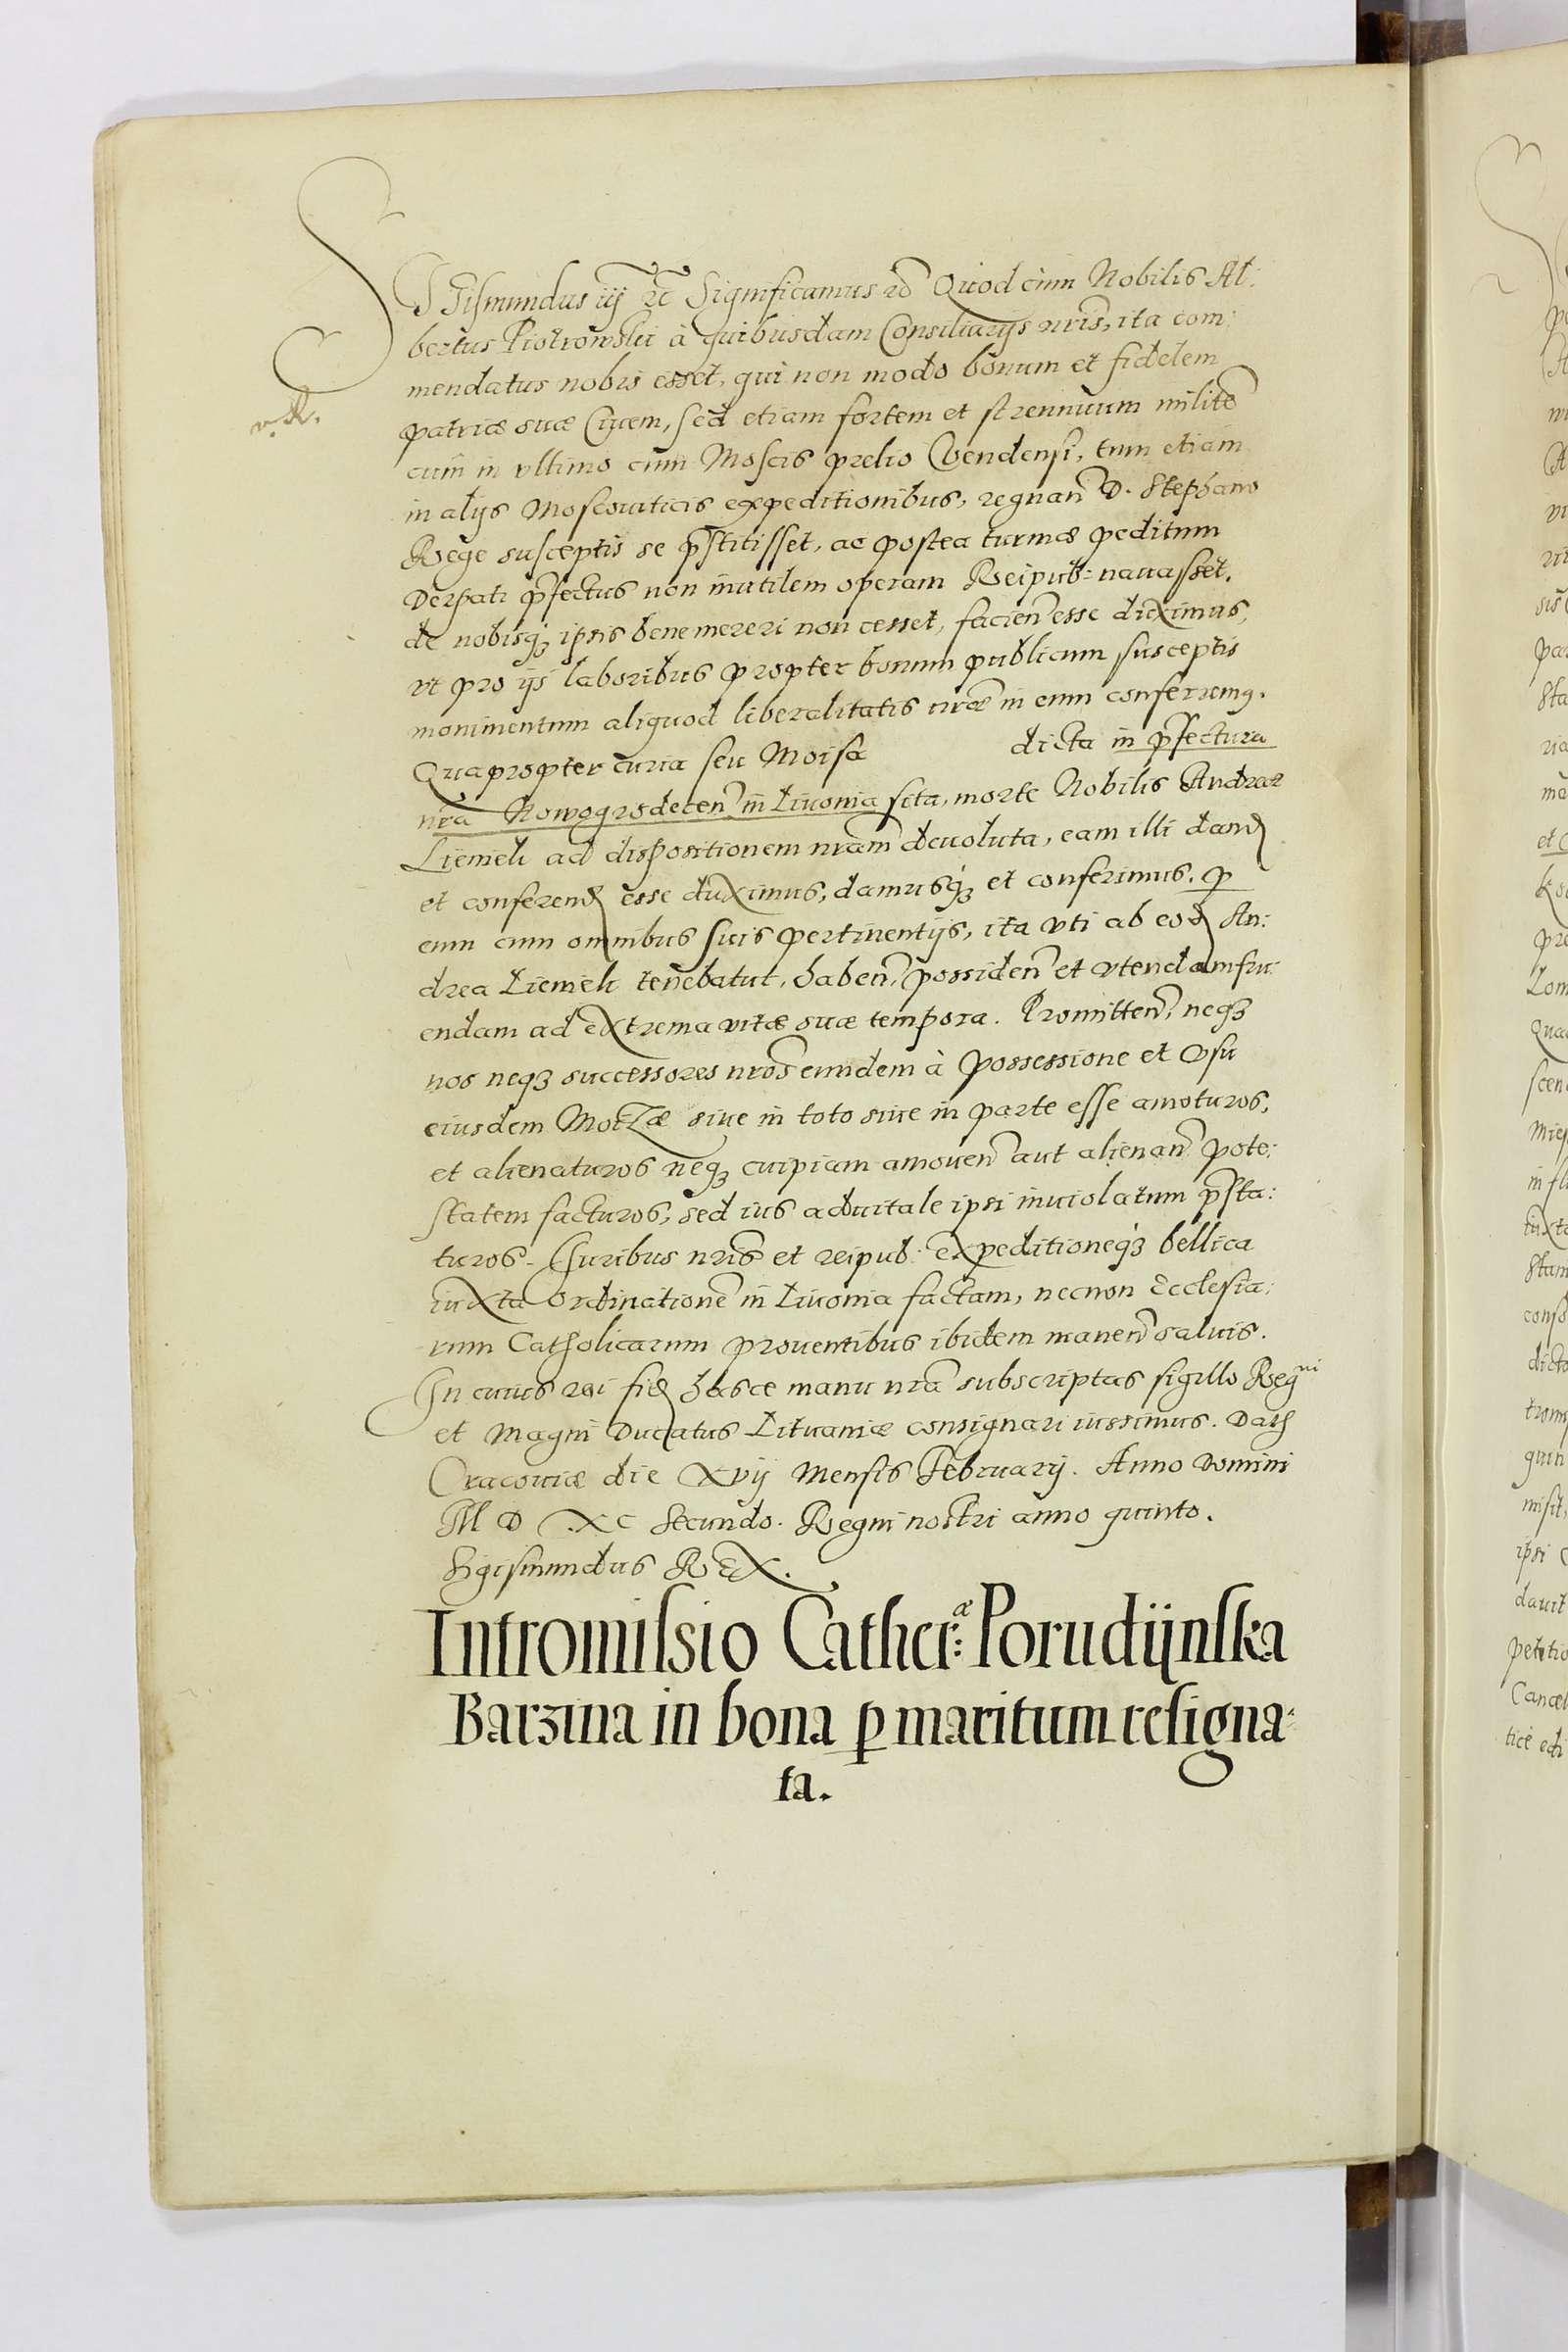 SIGismundus iij etc̃ Significamus etc̃ Quod cum Nobilis Al:
bertus Piotrowski à quibusdam Consiliarijs nris̃, ita com:
mendatus nobis esset, qui non modo bonum et fidelem
patriæ suæ Ciuem, sed etiam fortem et strennuum militẽ
cum in vltimo cum Moscis prelio Vendensi, tum etiam
in alijs Moscouiticis expeditionibus, regnañ D. Stephano
Rege susceptis se p̃stitisset, ac postea turmæ peditum
Derpati p̃fectus non inutilem operam Reipub: nauasset,
de nobisq́ꝫ ipsis bene mereri non cesset, facieñ esse duximus,
vt pro ijs laboribus propter bonum publicum susceptis
monimentum aliquod liberalitatis nræ̃ in eum conferremꝰ.
Quapropter curia seu Moisa dicta in p̃fectura
nrã Nowogrodeceñ in Liuonia sita, morte Nobilis Andreæ
Liemek ad dispositionem nram̃ deuoluta, eam illi dand
et conferend esse duximus, damusq́ꝫ et conferimus. ꝑ
eum cum omnibus suis pertinentijs, ita vti ab eod An:
drea Liemek tenebatut, habeñ, possideñ et vtendamfru:
endam ad extrema vitæ suæ tempora. Promitteñ, neqꝫ
nos neqꝫ successores nros̃ eundem à possessione et vsu
eiusdem Motzæ siue in toto siue in parte esse amoturos,
et alienaturos neqꝫ cuipiam amoueñ aut alienañ pote:
statem facturos, sed ius aduitale ipsi inuiolatum p̃sta:
turos. Iuribus nris̃ et reipub: expeditioneq́ꝫ bellica
iuxta Ordinationẽ in Liuonia factam, necnon Ecclesia:
rum Catholicarum prouentibus ibidem maneñ saluis.
In cuius rei fid hasce manu nrã subscriptas sigillo Regni
et Magni Ducatus Lituaniæ consignari iussimus. Dat
Cracouiæ die xvij Mensis Februarij. Anno Domini
M D XC Secundo. Regni nostri anno quinto.
Sigismundus REX.
Intromissio Cather:æ Porudijnska
Barzina in bona ꝑ maritum resigna:
ta.